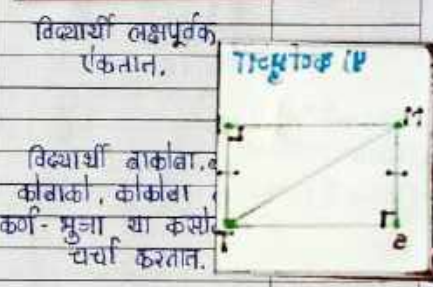 विद्यार्थी लक्षपूर्वक
ऐकतात.
विद्यार्थी बाकोबा,
कोबाको, कोकोबा
कर्ण - भुजा या कसो
चर्चा करतात.